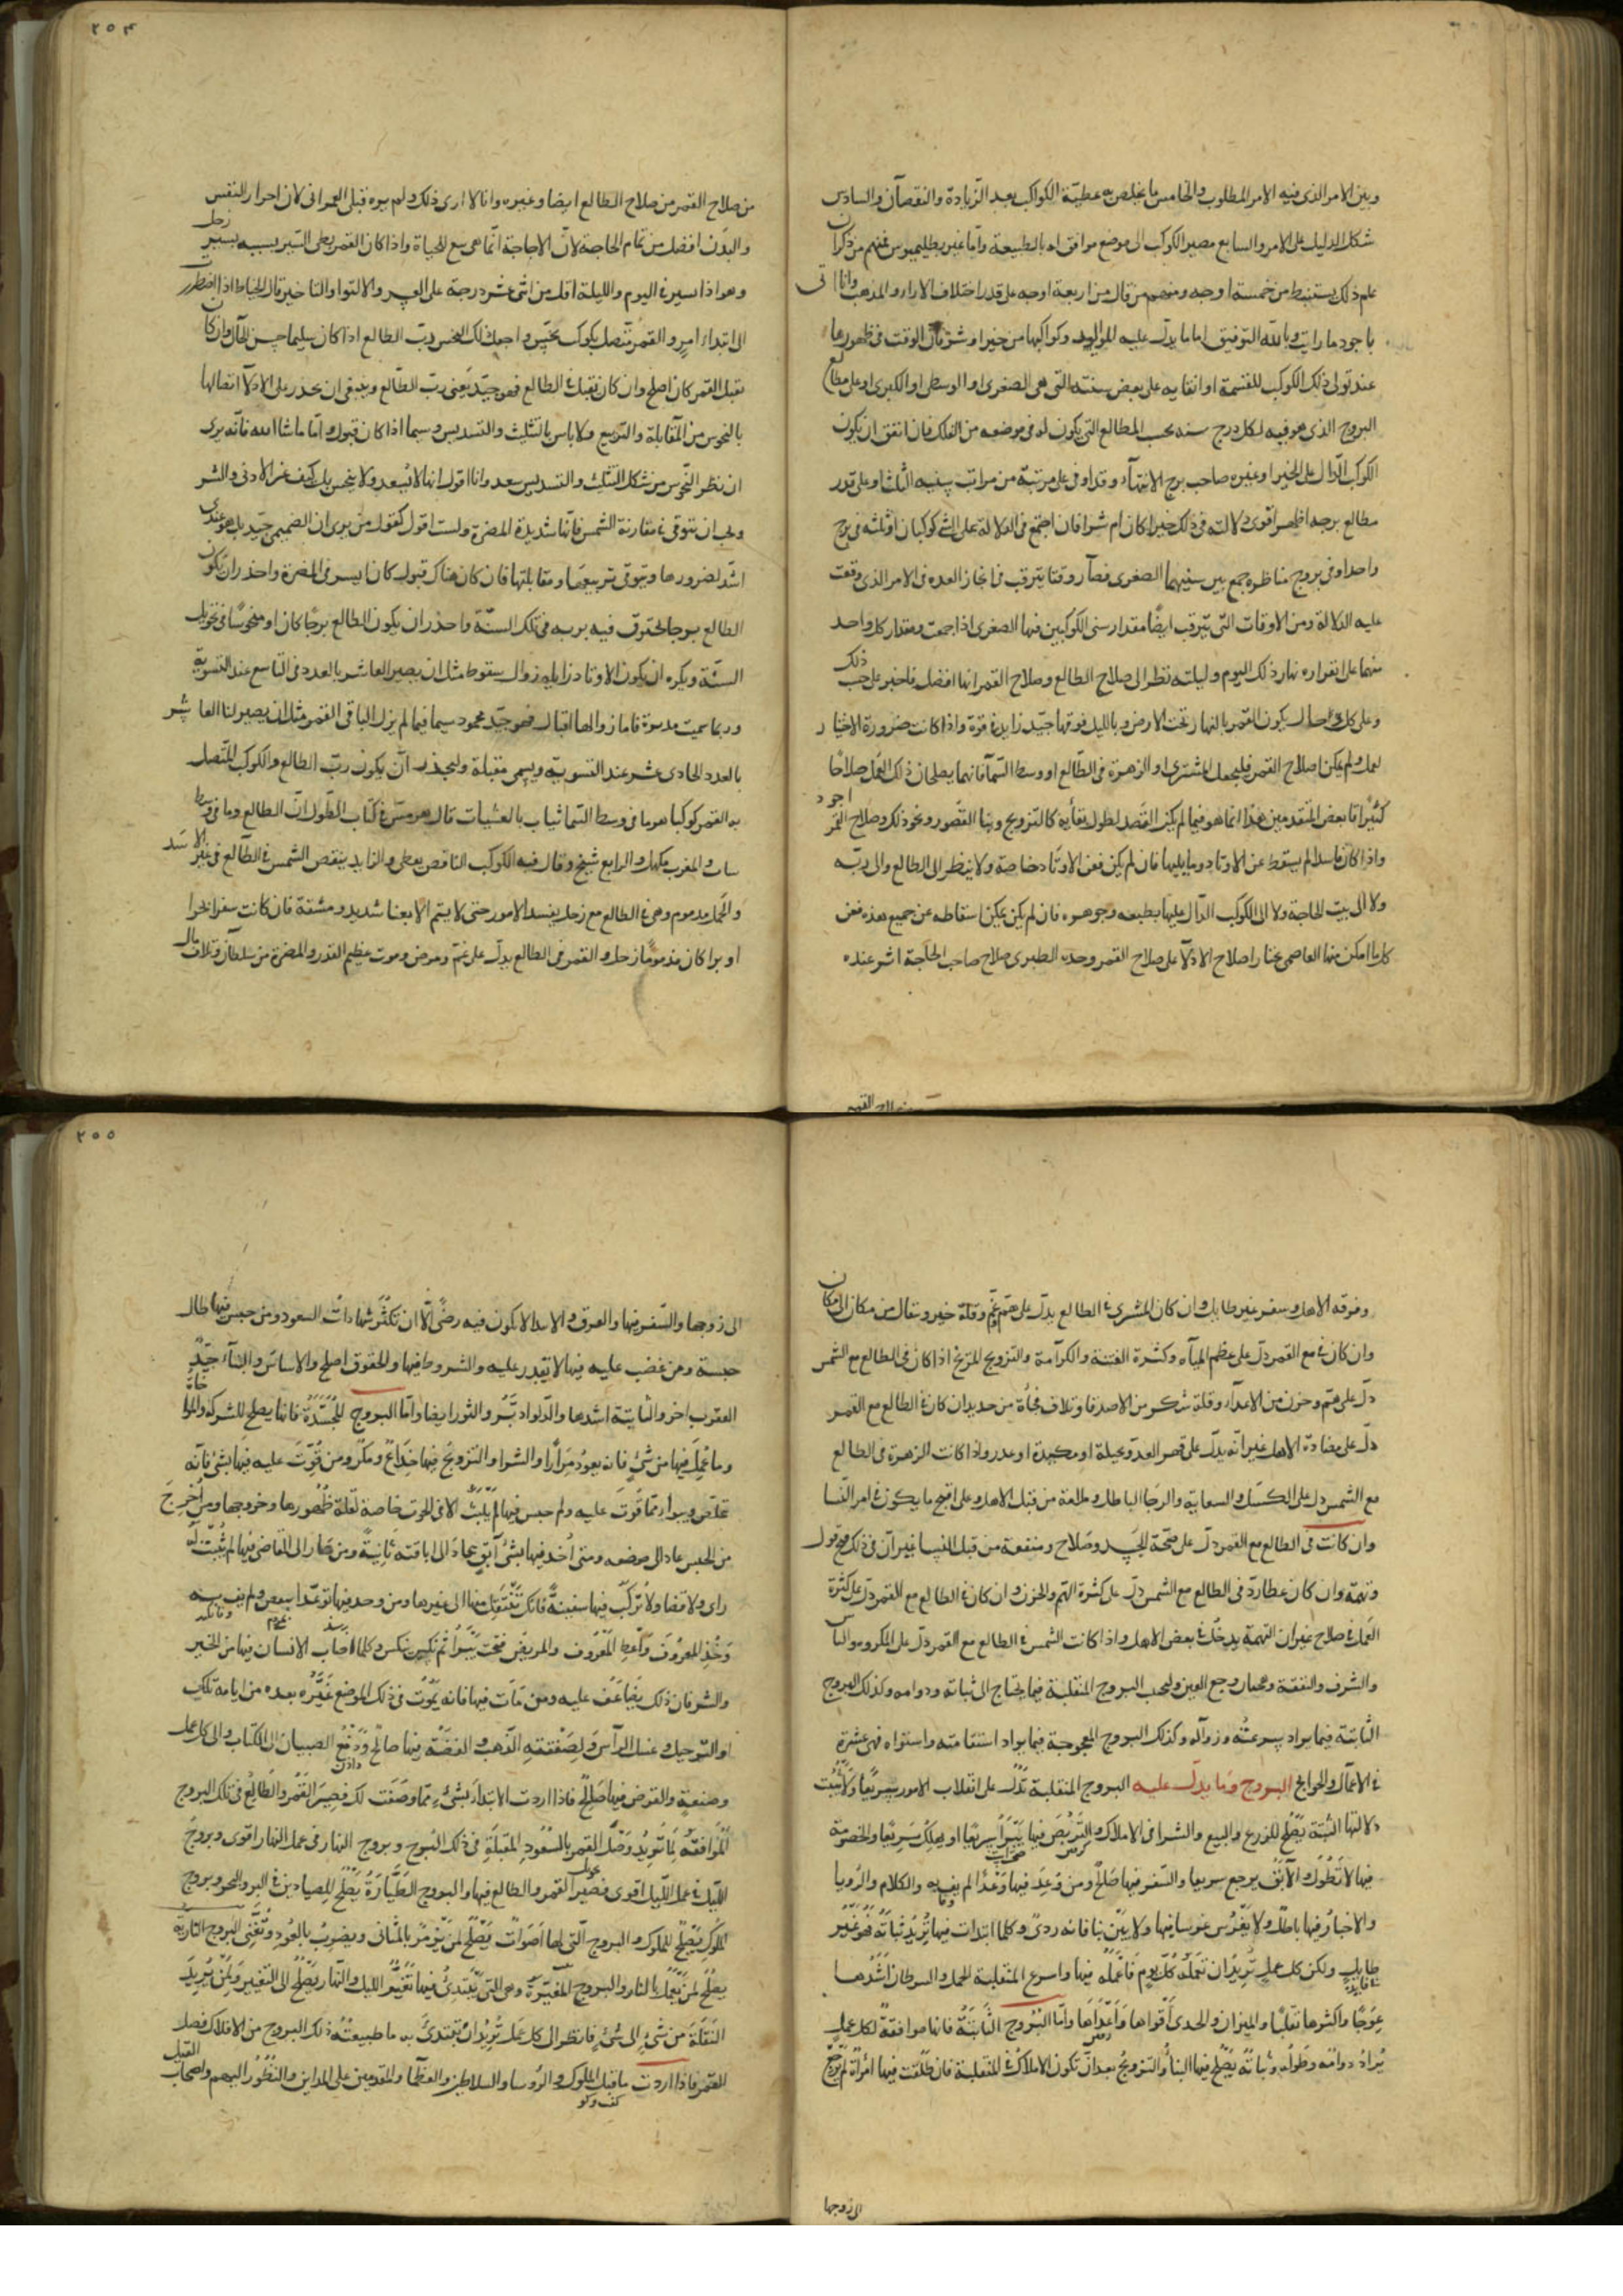 وبين الامر الذى فيه الامر المطلوب والخامس ما يخلص به عطية الكواكب بعد الزيادة والنقصان والسادس
شكل الدليل على الامر والسابع مصير الكوكب الى موضع موافق له بالطبيعة وأما غير بطليموس فمنهم من ذكر ان
علم ذلك يستنبط من خمسة اوجه ومنهم من قال من اربعة اوجه على قدر اختلاف الاراء والمذهب وانا اتى
باجود ما رايت وبالله التوفيق اما ما يدل عليه المواليد وكواكبها من خير او شر فان الوقت فى ظهورها
عند تولى ذلك الكوكب للقسمة او انتهايه على بعض سنيه التى هى الصغرى او الوسطى او الكبرى او على مطالع
البروج الذى هو فيه لكل درج سنه بحسب المطالع التى يكون له فى موضعه من الفلك فان اتفق ان يكون
الكوكب الدال على الخير او غيره صاحب برج الانتهآء وقد اوفى على مرتبة من مراتب سنيه الثلث او على قدر
مطالع برجه اظهر اقوى دلالته فى ذلك خيرا كان ام شرا فان اجتمع فى الدلالة على الشى كوكبان او ثلثه فى برج
واحد او فى بروج مناظره جمع بين سنيهما الصغرى فصار وقتا يترقب فى انجاز العده فى الامر الذى وقعت
عليه الدلالة ومن الاوقات التى تترقب ايضا مقدار سنى الكوكبين فيها الصغرى اذا جمعت ومقدار كل واحد
منهما على انفراده نهار ذلك اليوم وليلته نظر الى صلاح الطالع وصلاح القمر ايها افضل فاختير على حسب ذلك
وعلى كل حال يكون القمر بالنهار تحت الارض وبالليل فوقها جيد زايد فى قوة واذا كانت ضرورة الاختيار
لعمل ولم يمكن اصلاح القمر فليجعل المشترى او الزهرة فى الطالع او وسط السمآ فانهما يصلحان ذلك العمل صلاحا
كثيرا قا بعض المتقدمين هذا انما هو فيما لم يكن القصد لطول بقايه كالتزويج وبنا القصور ونحو ذلك وصلاح القمر اجود
واذا كان فاسدا لم يسقط عن الاوتاد وما يليها فان لم يكن فعن الاوتاد خاصة ولا ينظر الى الطالع والى ربه
ولا الى بيت الحاجة ولا الى الكوكب الدال عليها بطبعه وجوهره فان لم يكن يمكن اسقاطه عن جميع هذه فعن
كل ما امكن منها العاصمى يختار اصلاح الادلا على صلاح القمر وحده الطبرى صلاح صاحب الحاجة اثر عنده
من صلاح القمر من صلاح الطالع ايضا وغيره وانا لا ارى ذلك ولم يره قبلى العمرانى لان احراز النفس
والبدن افضل من تمام الحاجة لان الحاجة انما هى مع الحياة واذا كان القمر بطى السير يسير زحل
وهو اذا سير فى اليوم والليلة اقل من اثنى عشر درجة على العسر والالتوا والتاخير قال الخياط اذا اضطرر
الى ابتداء امر والقمر متصل بكوكب نحس واجعل ذلك النحس رب الطالع اذا كان سليما حسن الحال وان كان
يقبل القمر كان اصلح وان كان يقبل الطالع فهو جيد يعنى رب الطالع وينبغى ان يحذر على الادلآ اتصالها
بالنحوس من المقابلة والتربيع ولا باس بالتثليث والتسديس وسيما اذا كان قبول واما ماشاالله فانه يرى
ان نظر النحوس من شكل التثليث والتسديس سعد وانا اقول انها لا تسعد ولا ينحس بل كيف عن الادنى والشر
ويجب ان يتوقى فى مقارنة الشمس فانها شديدة المضرة ولست اقول كقول من يرى ان الصميمى جيد بل هو عندى
اشد لضرورها ويتوقى تربيعها ومقابلتها فان كان هناك قبول كان ايسر فى المضرة واحذر ان تكون
الطالع برجا يحترق فيه بربه فى تلك السنة واحذر ان يكون الطالع برجا كان او منحوسا فى تحويل
السنة ويكره ان يكون الاوتاد زايله زوال سقوط مثل ان يصير العاشر بالعدد فى التاسع عند التسوية
بالعدد الحادى عشر عند التسوية ويسمى مقبلة وليحذر ان يكون رب الطالع والكوكب المتصل
به القمر كوكبا هرما فى وسط السما ثياب بالعشيات قال هرمس فى كتاب الطول ان الطالع وما فى وسط
والحمل مذموم وهى فى الطالع مع زحل يفسد الامور حتى لا يتم الا بعنا شديد ومشقة فان كانت سفرا بحرا
او برا كان مذموما زحل والقمر فى الطالع يدل على غم ومرض وموت عظيم القدر والمضرة من سلطان وتلاف مال
٢٥٤
وفرقه الاهل وسفر غير طايل وان كان المشترى فى الطالع يدل على هم وغم وقلة خير وينتقل من مكان الى مكان
وان كان فى مع القمر دل على عظم المياه وكثرة الفتنة والكرآمة والتزويج المريخ اذا كان فى الطالع مع الشمس
دل على هم وحزن من الاعدآء وقلة شكر من الاصدقا وتلاف فجأة من حديد ان كان فى الطالع مع القمر
دل على مضادة الاهل غير انه يدل على قهر العدو بحيلة او مكيدة او غدر واذا كانت الزهرة فى الطالع
مع الشمس دل على الكسل والسعاية والرجا الباطل وطلعة من قبل الاهل وعلى اقبح ما يكون فى امر النسا
وان كانت فى الطالع مع القمر دل على صحة الجسد وصلاح ومنفعة من قبل النسا غير ان فى ذلك قبح قول
وتهمة وان كان عطارد فى الطالع مع الشمس دل على كثرة الهم والحزن وان كان فى الطالع مع القمر دل على كثرة
العمل فى صلاح غير ان التهمة يدخل فى بعض الاهل واذا كانت الشمس فى الطالع مع القمر دل على المكروه والباس
والشرف والنفقة ووجع العين وليجب البروج المنقلبة فيما يحتاج الى ثباته ودوامه وكذلك البروج
الثابتة فيما يراد سرعته وزواله وكذلك البروج المعوجة فيما يراد استقامته واستواه فهى عشرة
فى الاعمال والحوايج البروج وما يدل عليه البروج المنقلبة تدل على انقلاب الامور سريعا ولا يثبت
دلالتها البتة يصلح للزرع والبيع والشرا فى الاملاك والمريض فيها يبرأ سريعا او يهلك سريعا والخصومة
فيها لا تطول والآبق يرجع سريعا والسفر فيها صلح ومن وعد فيها وعدا لم يف به والكلام والرويا
والاخبار فيها باطل ولا يغرس غرسا فيها ولا يبن بنا فانه ردى وكلما ابتدات فيها تريد ثباته فهو غير
طايل ولكن كل عمل تريد ان تعمله كل يوم فاعمله فيها واسرع المنقلبة الحمل والسرطان اشدها
عوجا واكثرها تقلبا والميزان والجدى اقواها واعدلها واما البروج الثابتة فانها موافقة لكل عمل
يراد دوامه وطوله وثباته يصلح فيها البنا والتزويج بعد ان تكون الاملاك فى المنقلبة فان طلقت فيها امرأة لم ترجع
الى زوجها
الى زوجها والسفر فيها والعرق والابتدا لا يكون فيه رضى الا ان تكثر شهادات السعود ومن حبس فيها طال
حبسه ومن غضب عليه فيها لا يقدر عليه والشروط فيها والحقوق اصلح والاساس والبنآء جيد
العقرب اخر والثابتة اشدها والدلو والثور ايضا واما البروج المجسدة فانها يصلح للشركة والمواخاة
وما عمل فيها من شئ فانه يعود مرارا والشرا والتزويج فيها خداع ومكر ومن قويت عليه فيها بشئ فانه
من الحبس عاد الى موضعه ومتى اخذ فيها بشئ آبق عاد الى اباقته ثانية ومن صار الى القاضى فيها لم يثبت له
راى ولا قضا ولا تركب فيها سفينة فانك تنتقل منها الى غيرها ومن وعد فيها توعدا ببعض ولم يف به
وخذ المعروف واعط المعروف والمريض فتحت يبرأ ثم نكس وكلما اصاب الانسان فيها من الخير
والشر فان ذلك يضاعف عليه ومن مات فيها فانه يموت فى ذلك الموضع غيره بعده من ايامه تلك
او الترحيل وغسل الراس ولصفته الذهب والفضة فيها صالح ودفع الصبيان الى الكتاب والى كل عمل
وصنعة والقرض فيها صالح فاذا اردت الابتدا بشئ مما وصفت لك فصير القمر والطالع فى تلك البروج
الموافقة لما تريد وصل القمر بالسعود المقبلة فى ذلك البروج وبروج النهار فى عمل النهار اقوى وبروج
الليل فى عمل الليل اقوى فصير القمر والطالع فيها والبروج الطيارة يصلح للصيادين فى البر والبحر وبروج
الملوك يصلح للملوك والبروج التى لها اصوات يصلح لمن يزمر بالمثانى ويضرب بالعود ويغنى البروج النارية
يصلح لمن يعمل بالنار والبروج المغيرة وهى التى يبتدئ فيها تغير الليل والنهار يصلح الى التغيير ولمن يريد
النقلة من شئ الى شئ فانظر الى كل عمل تريد ان تبتدئ به ما طبيعته ذلك البروج من الافلاك فصل
القمر فاذا اردت ما قبل الملوك والروسا والسلاطين والعظما والمقدمين على المداين والنظور اليهم واصحاب
٢٥٥